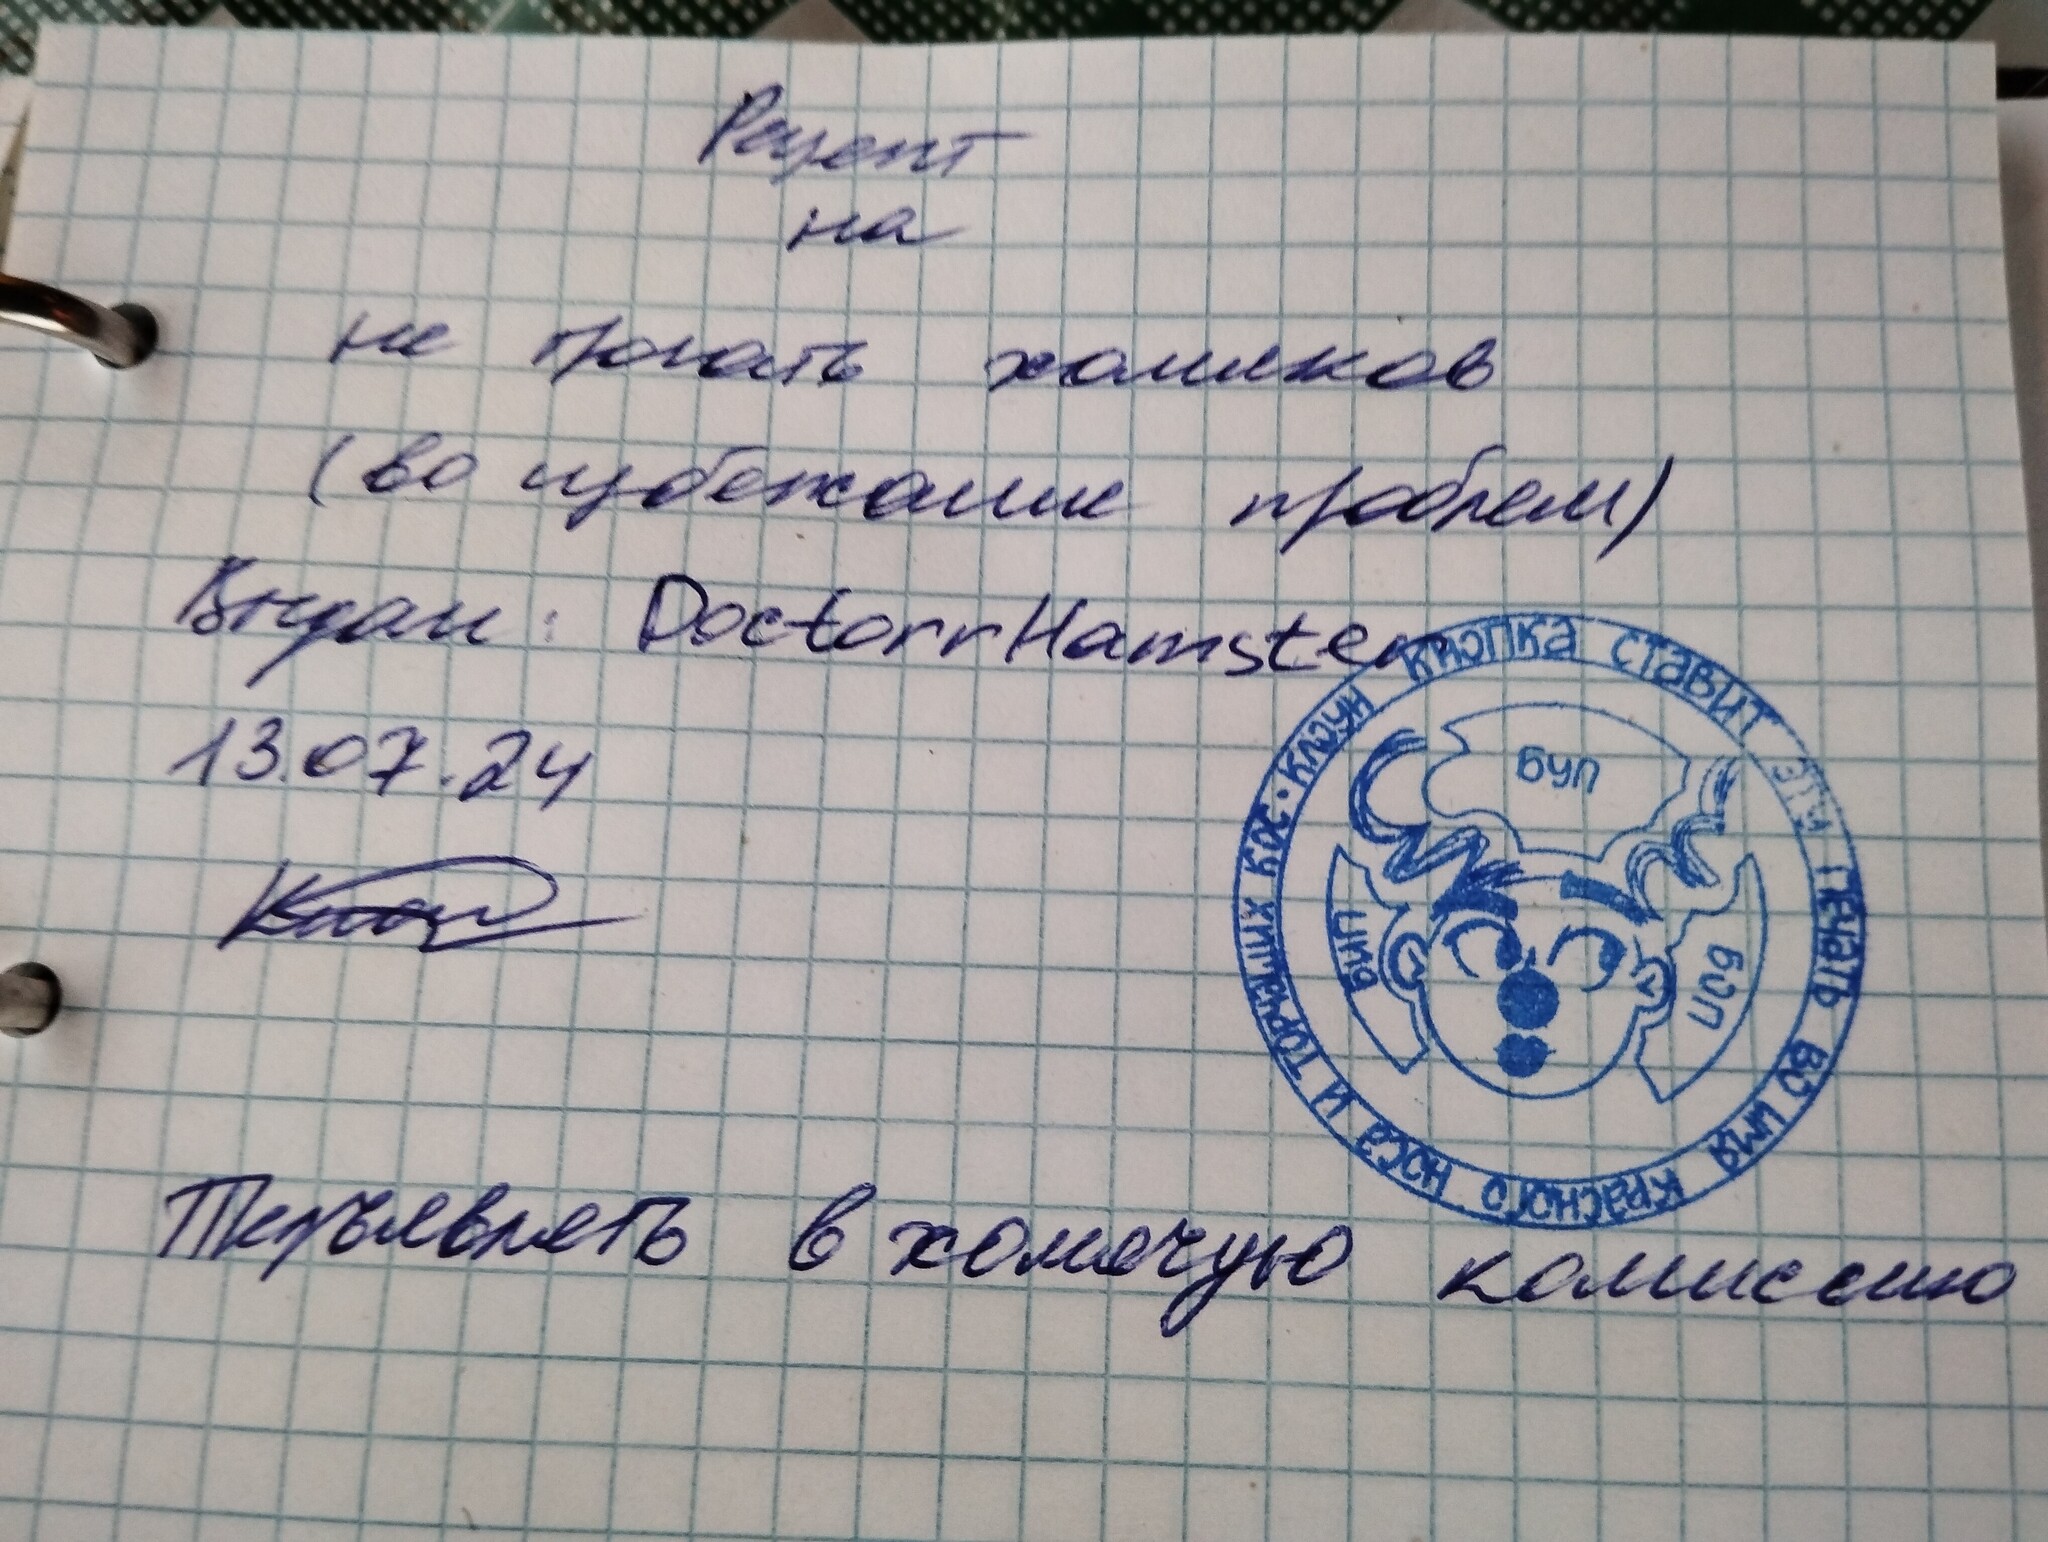 Рецепт
на
не трогать хомяков
(во избежание проблем)
Выдан: DoctorrHamster
13.07.24
Предъявлять в хомячую комиссию
КЛОУН КНОПКА СТАВИТ ЭТУ ПЕЧАТЬ ВО ИМЯ КРАСНОГО НОСА И ТОРЧАЩИХ КОС •
БУП
БИП
БОП